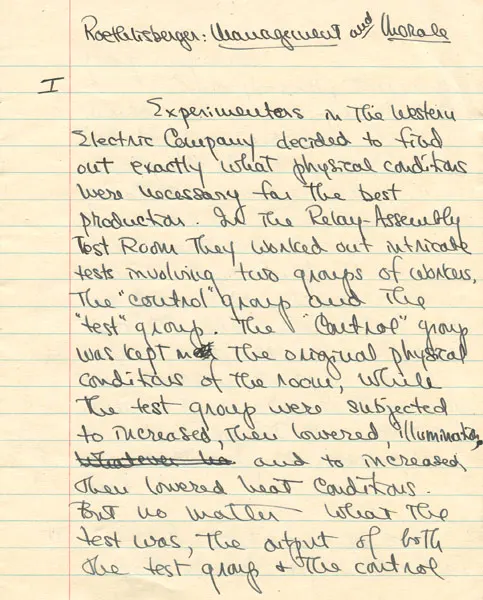 Roethlisberger: Management and Morale
I
Experimenters in the Western
Electric Company decided to find
out exactly what physical conditions
were necessary for the best
production. In the Relay-Assembly
Test Room they worked out intricate
tests involving two groups of workers,
the "control" group and the
"test" group. The "Control" group
was kept the original physical
conditions of the room, while
the test group were subjected
to increased, then lowered, illumination,
Whatever and to increased
then lowered heat conditions.
But no matter what the
test was, the output of both
the test group & the control